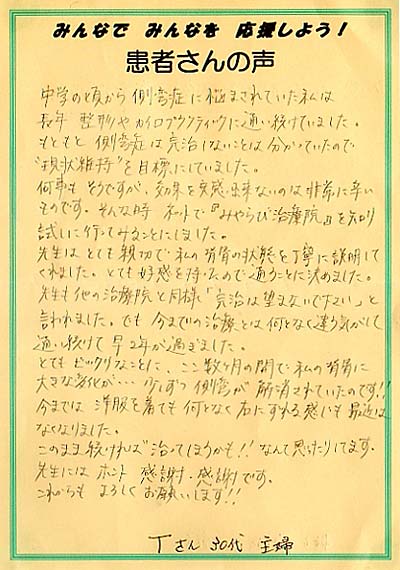 みんなで みんなを 応援しよう！
患者さんの声
中学の頃から 側弯症に悩まされていた私は
長年 整形やカイロプラクティックに通い続けていました。
もともと 側弯症は完治しないことは分かっていたので
"現状維持"を目標にしていました。
何事も そうですが、効果を実感出来ないのは非常に辛い
ものです。そんな時 ネットで『みやらび治療院』を知り
試しに行ってみることにしました。
先生はとても親切で私の背骨の状態を丁寧に説明して
くれました。とても好感を持ったので通うことに決めました。
先生も他の治療院と同様「完治は望まないで下さい」と
言われました。でも 今までの治療とは何となく違う気がして
通い続けて 早2年が過ぎました。
とても ビックリなことに、ここ数ヶ月の間で私の背骨に
大きな変化が… 少しずつ 側弯が 解消されていたのです!!
今までは 洋服を着ても何となく右にずれる感じも 最近は
なくなりました。
このまま続ければ"治ってしまうかも!! なんて思ったりしてます。
先生には ホント 感謝・感謝です。
これからも よろしく お願いします!!
Tさん 30代 主婦